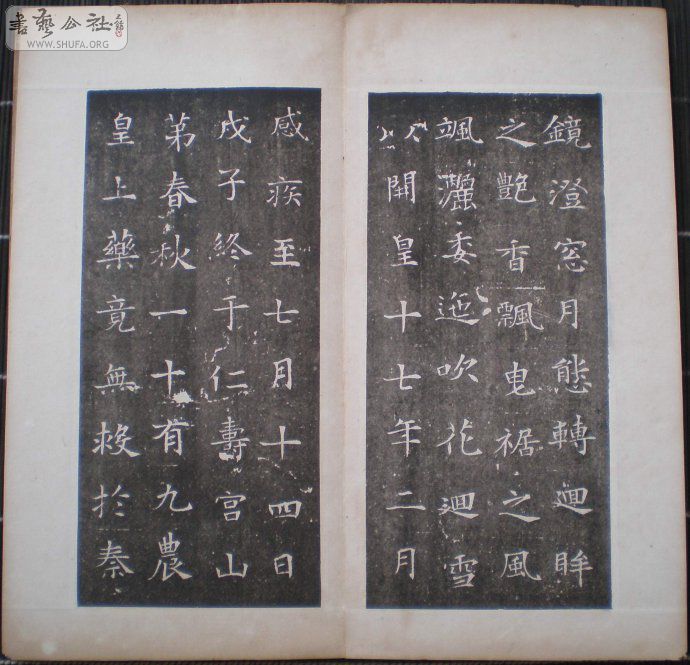 鏡澄窓月態轉廻眸
之艶香飄曳裾之風
颯灑委迤吹花迴雪
以開皇十七年二月
感疾至七月十四日
戊子終于仁壽宮山
第春秋一十有九農
皇上藥竟無救於秦
書藝公社
WWW.SHUFA.ORG